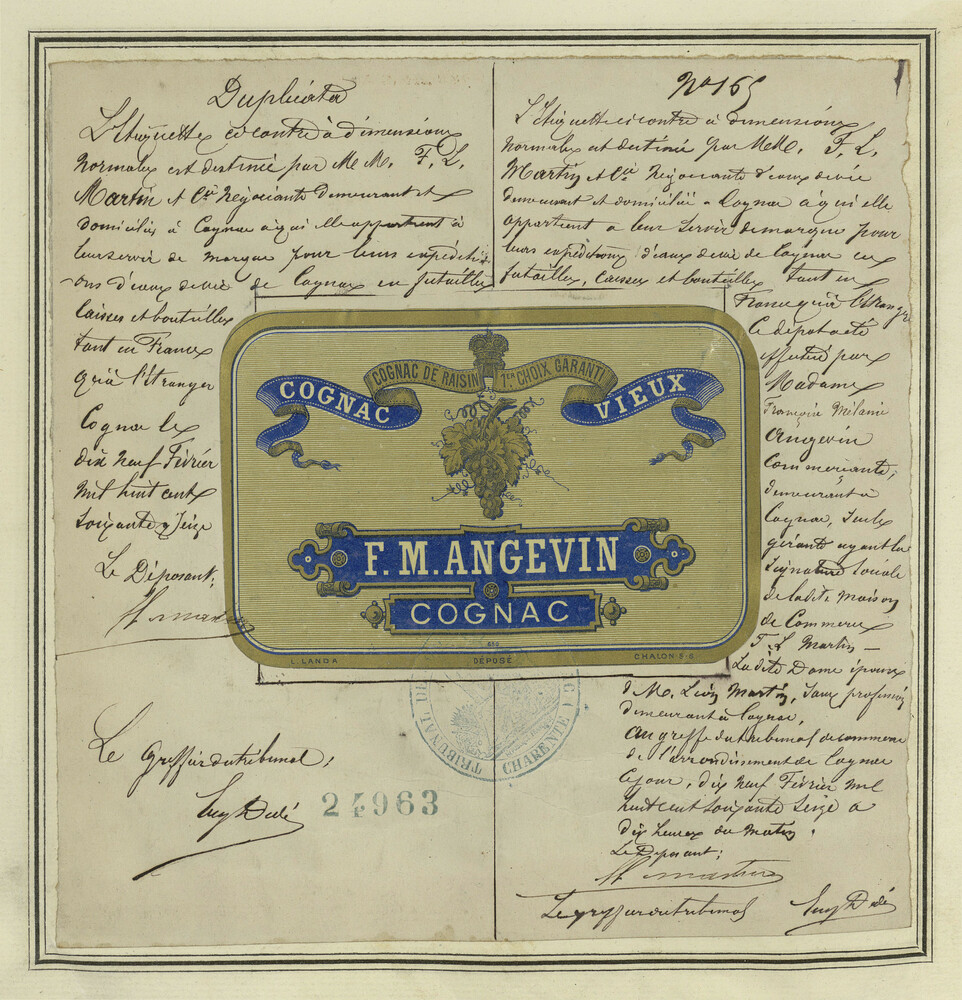 Duplicata
L'Etiquette ci contre à dimensions
Normales est destinée par M.M. F. L.
Martin et Cie Négociants demeurant et
domiciliés à Cognac à qui elle appartient à
leur servir de marque pour leurs expéditi-
ons d'eaux de vie de Cognac en futailles
caisses et bouteilles
tant en France
qu'à l'étranger
Cognac le
dix neuf Février
mil huit cent
soixante & seize
Le Déposant,
Le Greffier du tribunal,
24963
No 165
L'Etiquette ci contre à dimensions
normales est destinée par M.M. F. L.
Martin et Cie Négociants d'eaux de vie
demeurant et domiciliés à Cognac à qui elle
appartient à leur servir de marque pour
leurs expéditions d'eaux de vie de Cognac en
futailles, caisses et bouteilles tant en
France qu'à l'étranger
Ce dépôt a été
effectué par
Madame
Françoise Mélanie
Angevin
Commerçante,
demeurant à
Cognac, Seule
gérante ayant la
signature sociale
de la dite maison
de Commerce
F. L Martin —
La dite Dame épouse
de M. Léon Martin, sans profession
demeurant à Cognac,
au greffe du tribunal de commerce
de l'arrondissement de Cognac
Ce jour, dix neuf Février mil
huit cent soixante seize à
dix heures du matin.
Le Déposant;
Le greffier du tribunal
COGNAC DE RAISIN 1ER CHOIX GARANTI
COGNAC VIEUX
F. M. ANGEVIN
COGNAC
L. LANDA DÉPOSÉ CHALON S-S
TRIBUNAL DE
CHARENTE